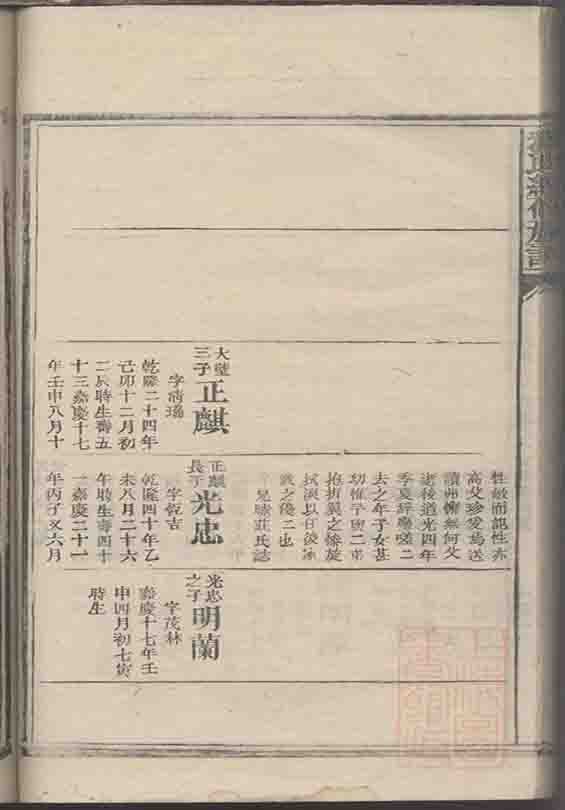 氏續修族譜
大璧
三子
正麒
字清
乾隆二十四年
己卯十二月初
二辰時生壽五
十三嘉慶十七
年壬申八月十
性敏而訥性亦
高父珍愛焉送
讀弗懈無何父
逝後道光四年
季夏辭塵嗟二
去之年子女甚
幼惟予與二弟
抱折翼之慘旋
拭淚以
之 二也
兄 莊氏誌
正麒
長子
光忠
字乾吉
乾隆四十年乙
未八月二十六
午時生壽四十
一嘉慶二十一
年丙子又六月
光忠
之子
明蘭
字茂林
嘉慶十七年壬
申四月初七寅
時生